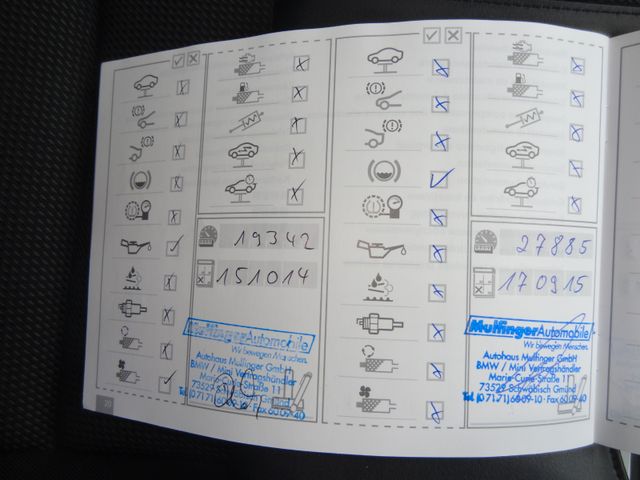 19342
151014
MulfingerAutomobile
Wir bewegen Menschen.
Autohaus Mulfinger GmbH
BMW / Mini Vertragshändler
Marie-Curie-Straße 11
73529 Schwäbisch Gmünd
Tel. (07171) 60 09-10 · Fax 60 09-40
20
27885
170915
MulfingerAutomobile
Wir bewegen Menschen.
Autohaus Mulfinger GmbH
BMW / Mini Vertragshändler
Marie-Curie-Straße
73529 Schwäbisch Gmünd
Tel. (07171) 60 09-10 · Fax 60 09-40